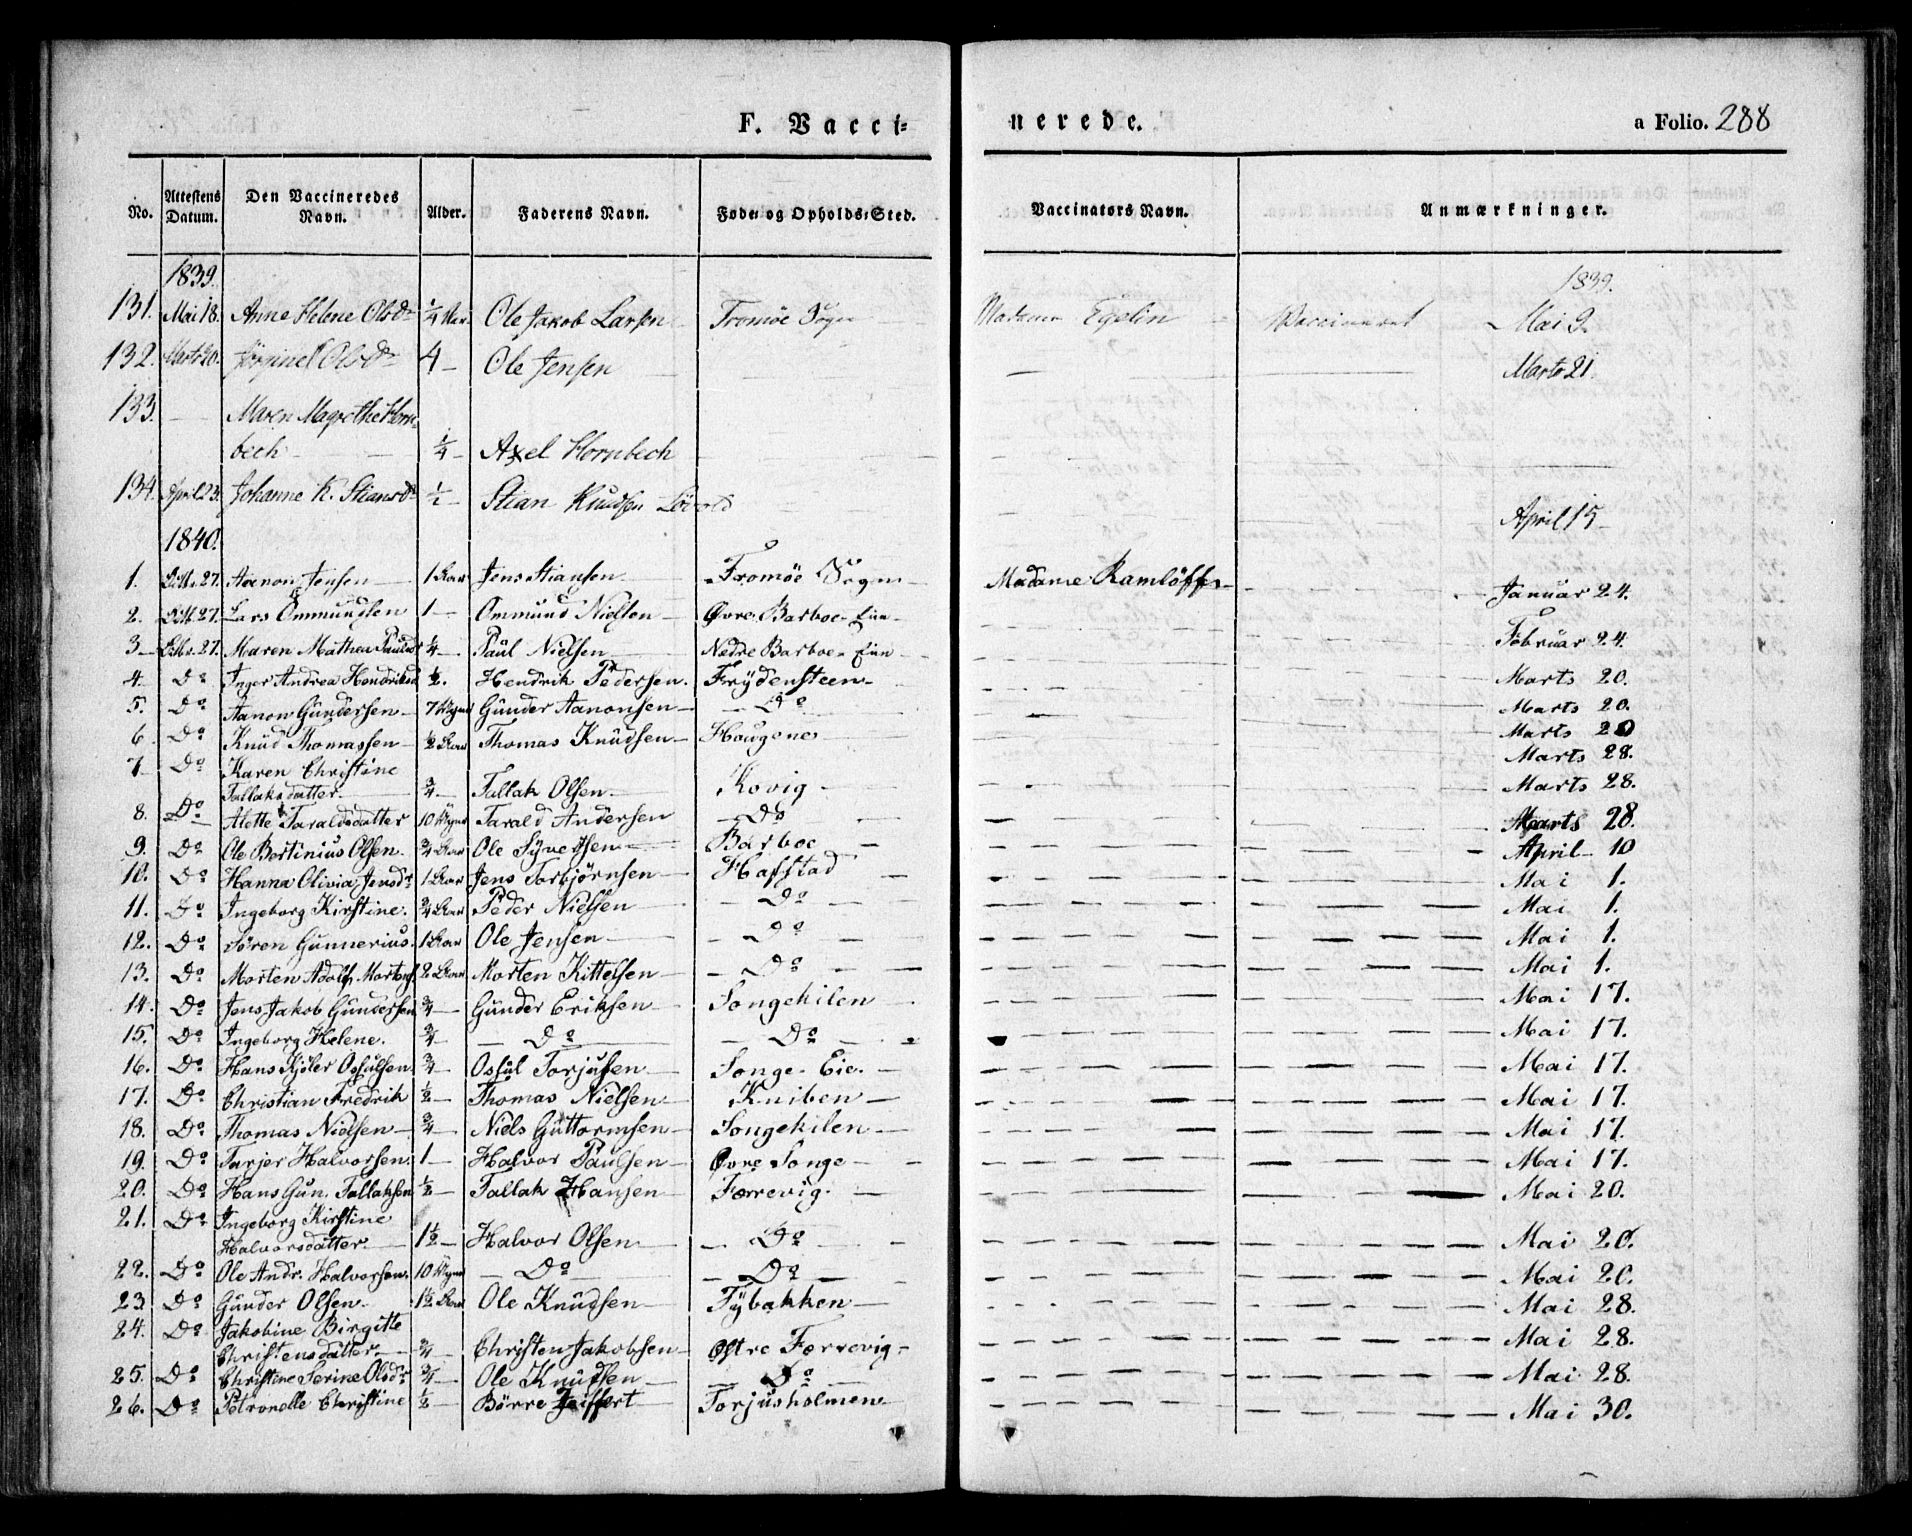 F. Vacci=nerede. a Folio. 288
No. Attestens Datum. Den Vaccineredes Navn. Alder. Faderens Navn. Føde- og Opholds-Sted. Vaccinators Navn. Anmærkninger.
1839. 1839.
131. Mai 18. Anne Helene Olsdr 1/4 Aar. Ole Jakob Larsen Tromöe Sogn Madame Egelin Vaccineret Mai 9.
132. Marts 20. Olsdr 4 — Ole Jensen — Marts 21.
133. — Maren Magrethe Horn-
bech — 1/4 — Axel Hornbech
134. April 23. Johanne K. Stiansdr 1/2 — Stian Knudsen April 15
1840.
1. 27. Aanon Jensen — 1 Aar Jens Stiansen Tromöe Sogn — Madame Ramlöffs — Januar 24.
2. 27. Lars Ommundsen 1 — Ommund Nielsen — Øvre Barboe — Februar 24.
3 — 27. Maren Mathea 1/4 — Paul Nielsen — Nedre Barboe —
4. Do Inger Andrea Hendriksd 1/2. Hendrik Pedersen. Frydensteen — Marts 20.
5. Do Aanon Gundersen — 7 Gunder Aanonsen — — Do Marts 20.
6. Do Knud Thomassen — 1/2 Aar Thomas Knudsen — Hougene Marts 20
Marts 28.
7 Do Karen Christine
Tallaksdatter — 3/4 — Tallak Olsen — Kovig — Marts 28.
8. Do Alette Taraldsdatter 10 Tarald Andersen — Do — Marts 28.
9. Do Ole Bertinius Olsen. 3/4 Aar Ole Syversen — Barboe — April — 10
10. Do Hanna Olivia Jensdr 1 Aar Jens Torbjörnsen — Hafstad — Mai 1.
11. Do Ingeborg Kirstine. 3/4 Aar Peder Nielsen — — Do — Mai 1.
12. Do Sören Gunnerius. 1 Aar Ole Jensen — — Do — Mai 1.
13. Do Morten Adolf Mortens. 2 Aar Morten Kittelsen — — Do — Mai 1.
14. Do Jens Jakob Gundersen 3/4 — Gunder Eriksen — Songekilen Mai 17.
15. Do Ingeborg Helene. 3/4 — — Do — — Do — Mai 17.
16. Do Hans Kjöler Osfulsen 3/4 — Osful Torjusen — Songe — Eie. — Mai 17.
17. Do Christian Fredrik 1/2 — Thomas Nielsen — Kniben — Mai 17.
18. Do Thomas Nielsen — 3/4 — Niels Guttormsen — Songekilen — Mai 17.
19. Do Tarjer Halvorsen. 1 — Halvor Paulsen — Øvre Songe — Mai 17.
20. Do Hans Gun. Tallaksen 1/2 — Tallak Hansen — Færrevig. — Mai 20.
21. Do Ingeborg Kirstine
Halvorsdatter — 1 1/2 — Halvor Olsen — — Do — Mai 20.
22. Do Ole Andr. Halvorsen. 10 — Do — — Do — Mai 20.
23 Do Gunder Olsen — 1 1/2 Aar Ole Knudsen — Tybakken — Mai 28.
24. Do Jakobine Birgitte
Christensdatter — 3/4 — Christen Jakobsen — Østre Færrevig — Mai 28.
25. Do — Christine Serine Olsdr 3/4 — Ole Knudsen — — Do — Mai 28.
26. Do Petronelle Christine 1/2 — Börre Zeiffert — Torjusholmen Mai 30.